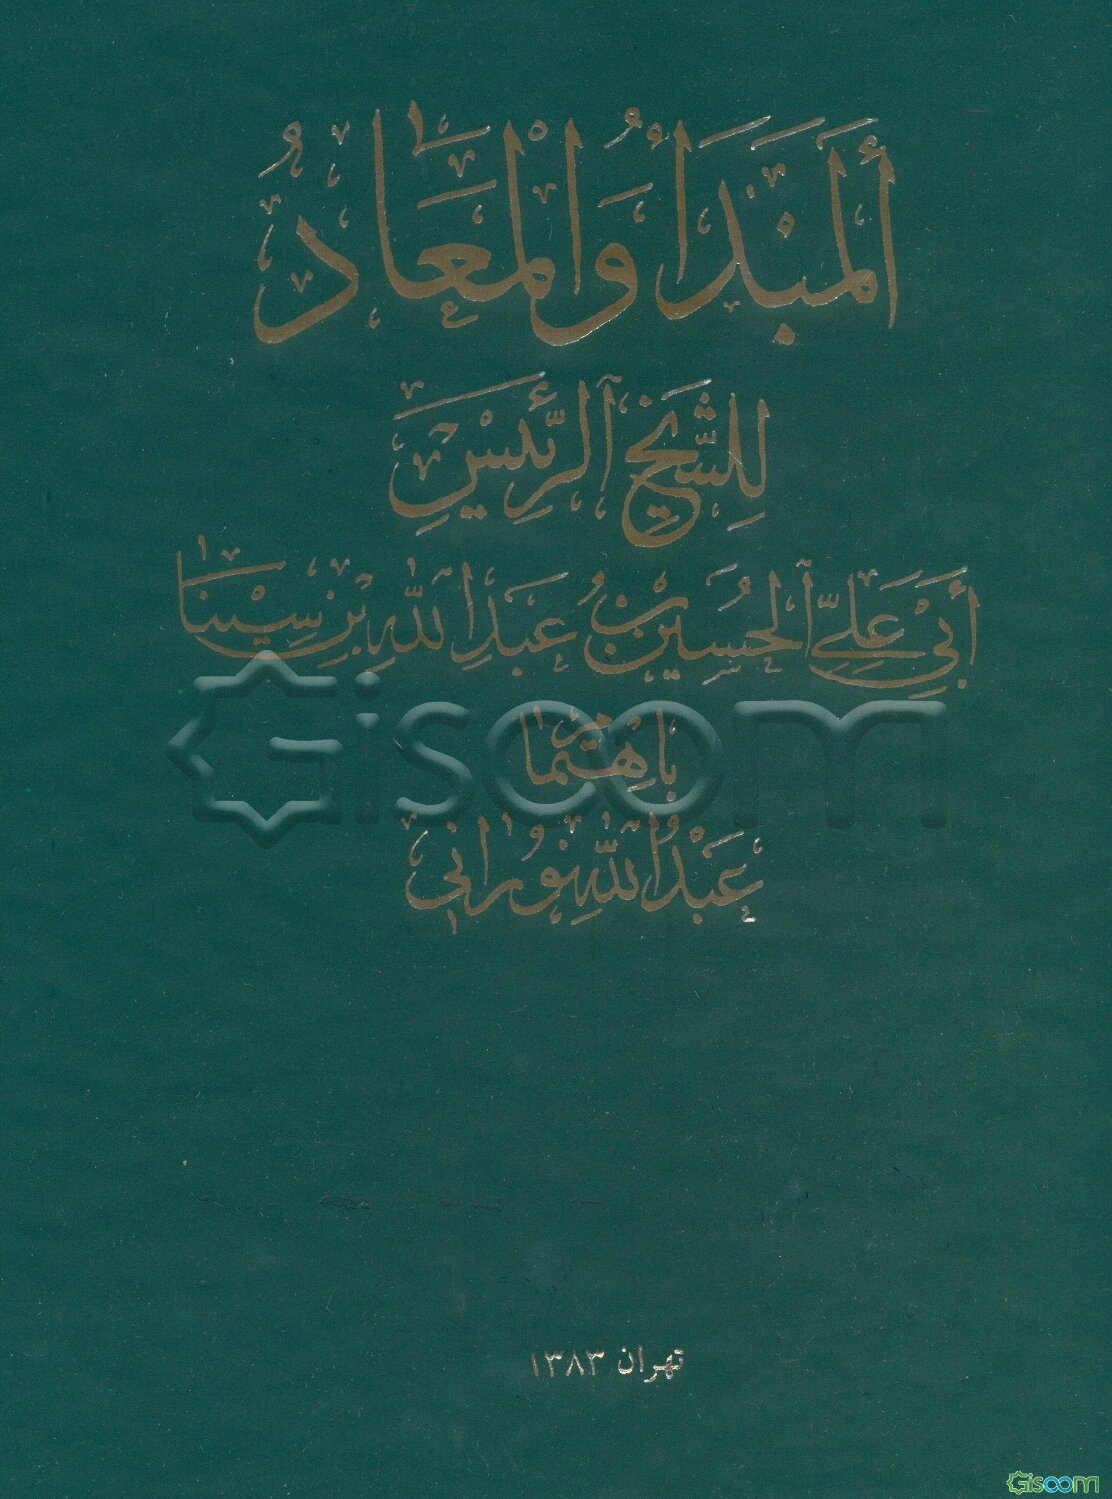 أَلْمَبْدَأُ وَالْمَعَادُ
لِلشَّيْخِ الرَّئِيسِ
أَبِي عَلِيٍّ الْحُسَيْنِ بْنِ عَبْدِ اللهِ بْنِ سِينَا
بِاهْتِمَامِ
عَبْدُ اللهِ نُورَانِي
تهران ۱۳۸۳
Gisoom
Gisoom